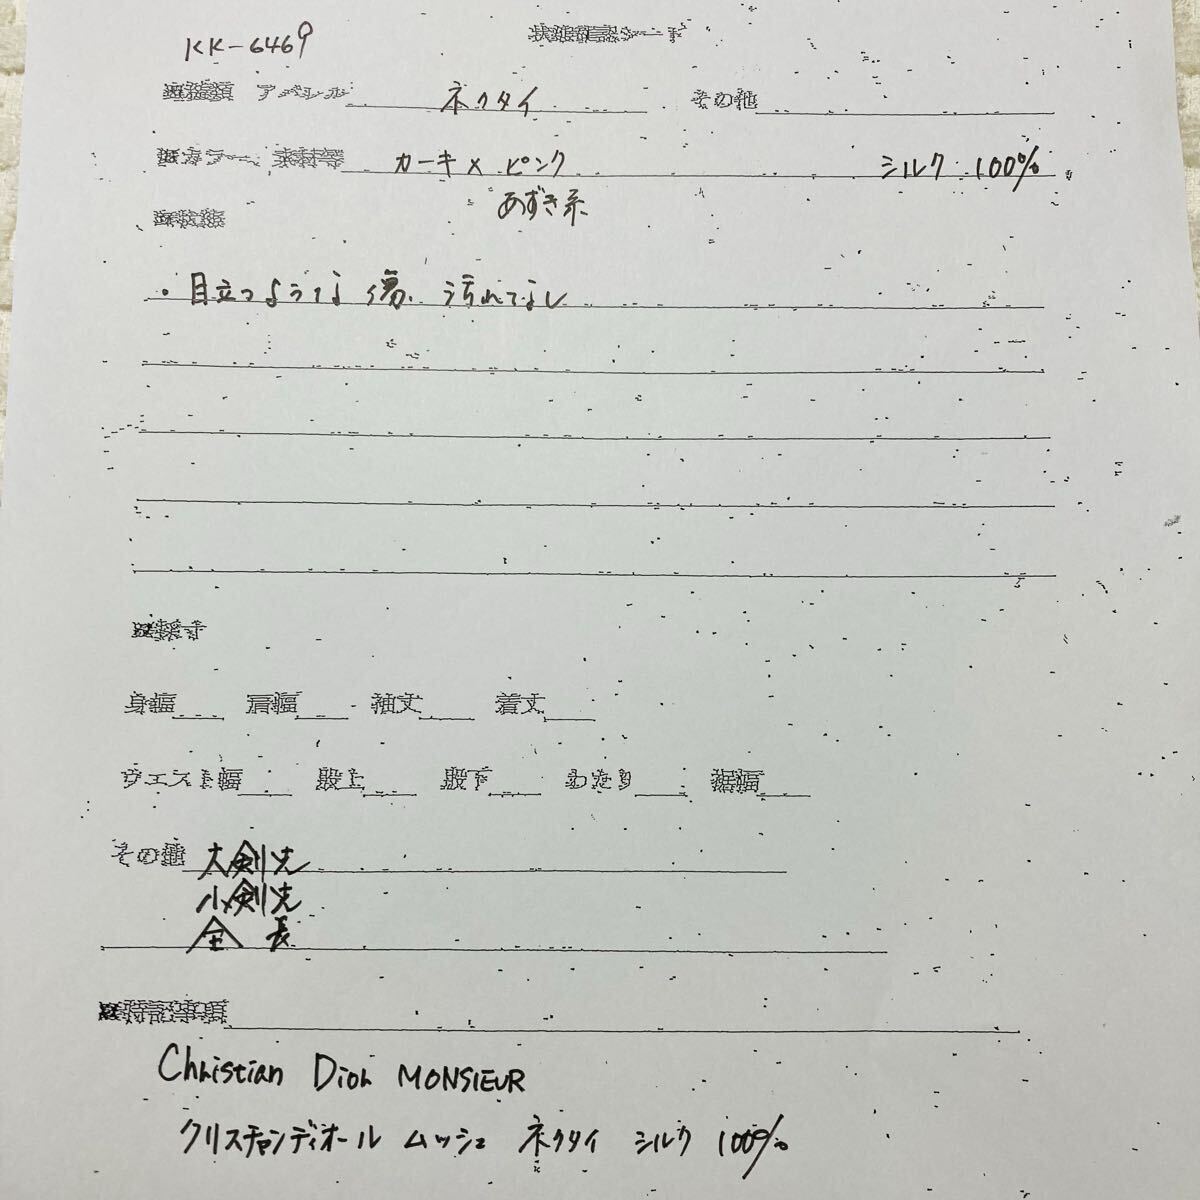 KK-6469
状態確認シート
■種類 アパレル ネクタイ その他
■カラー、素材等 カーキ×ピンク シルク 100%
あずき系
■状態
・目立つような傷、汚れてなし
■採寸
身幅 肩幅 袖丈 着丈
ウエスト幅 股上 股下 わたり 裾幅
その他 大剣先
小剣先
全 長
■特記事項
Christian Dior MONSIEUR
クリスチャンディオール ムッシュ ネクタイ シルク 100%